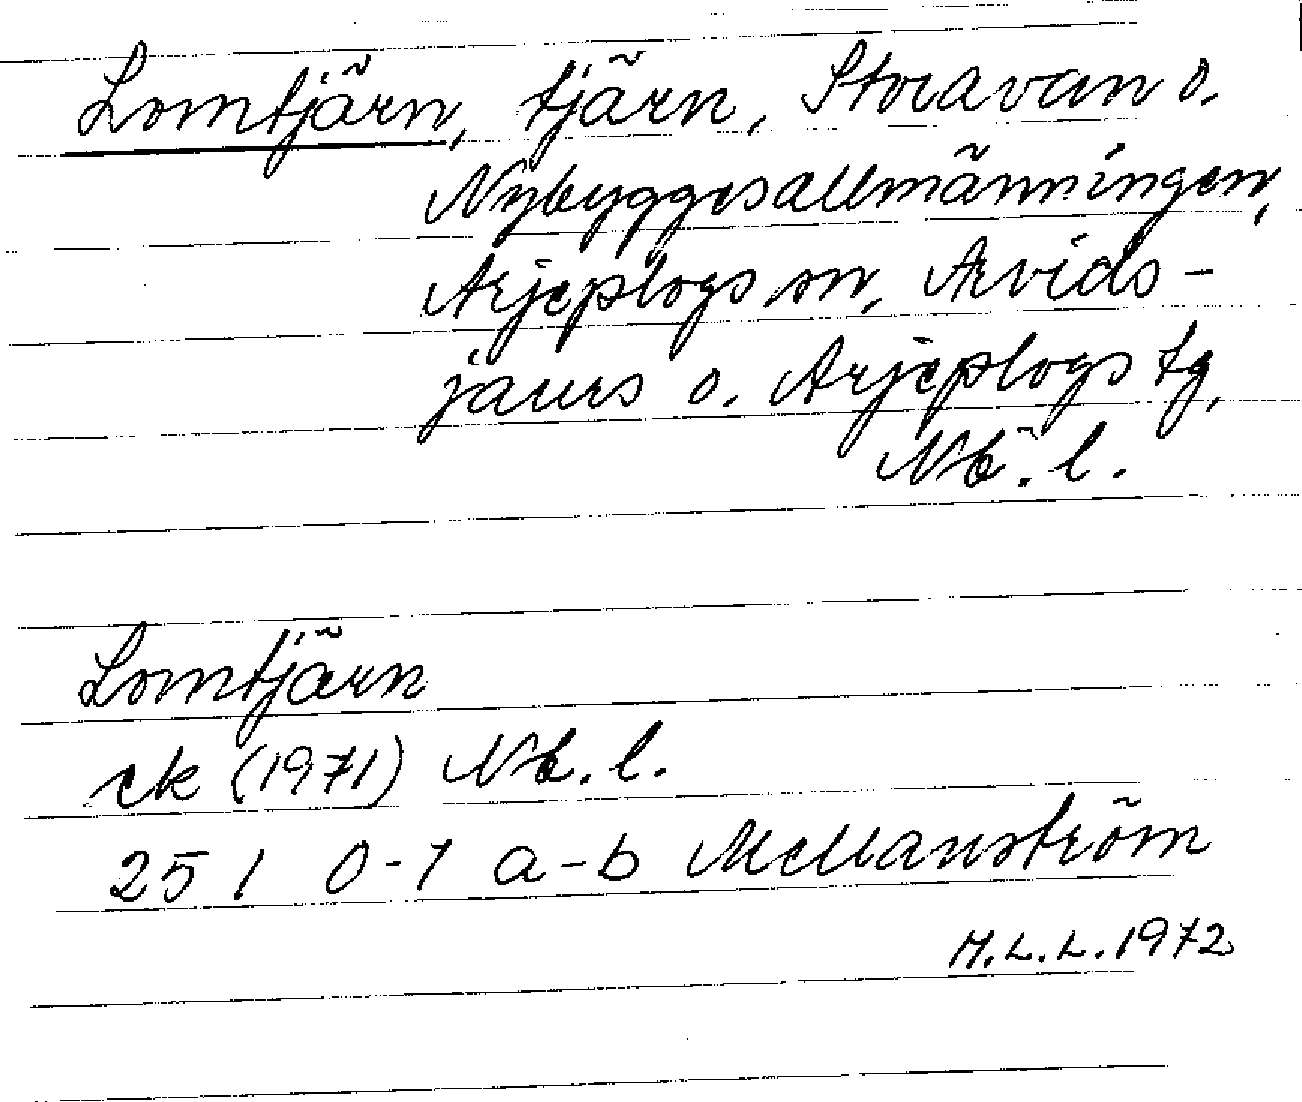 Lomtjärn, tjärn, Storavan o.
Nybyggesallmänningen,
Arjeplogs sn, Arvids-
jaurs o. Arjeplogs tg,
Nb. l.
Lomtjärn
ek (1971) Nb. l.
25 I 0-1 a-b Mellanström
M.L.L. 1972